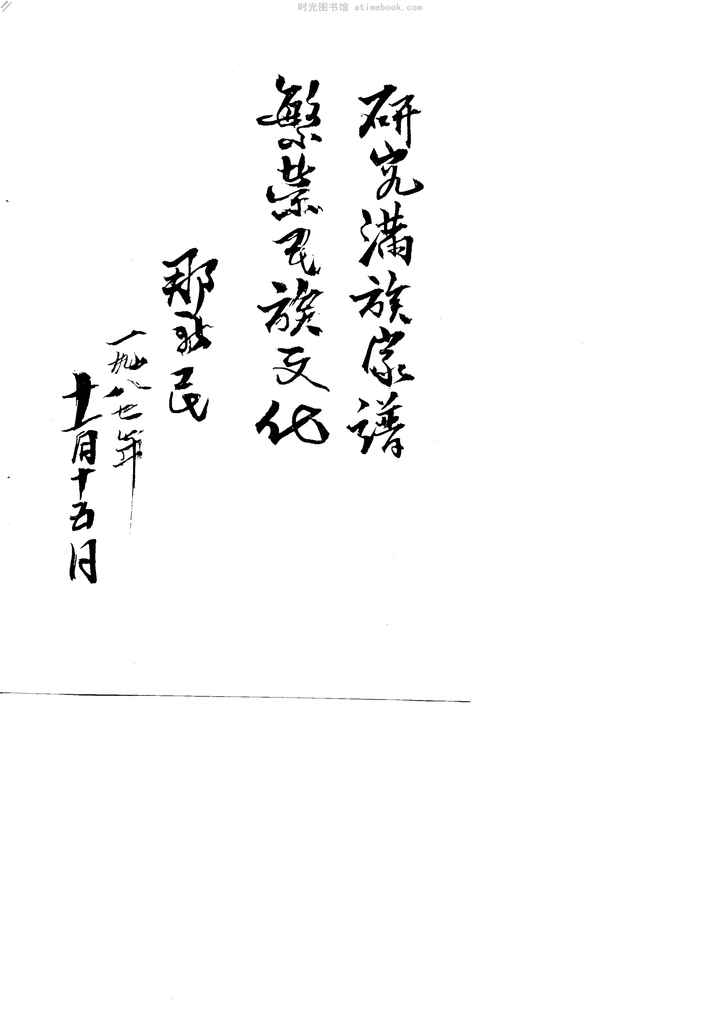 时光图书馆 atimebook.com
研究满族家谱
繁荣民族文化
那 民
一九八七年
十一月十五日